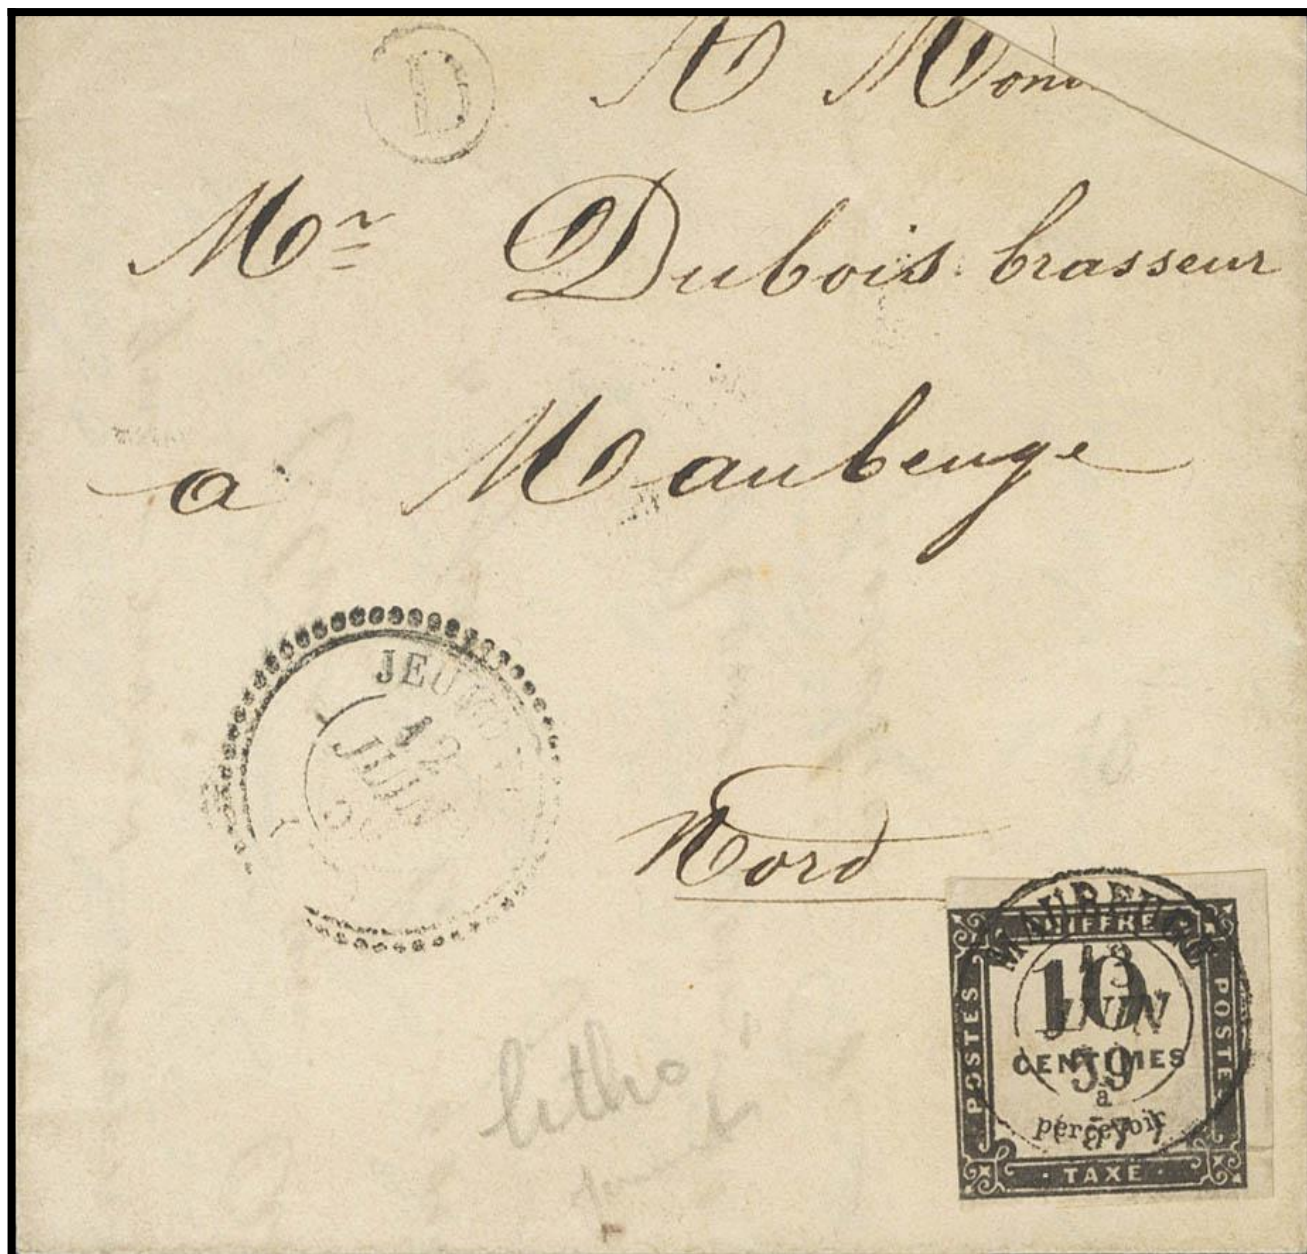 D
A Mon
Mr Dubois brasseur
a Maubeuge
JEUMO
12
JUIN
Nord
MAUBEUGE
13
JUIN
59
CHIFFRE
POSTES
10
CENTIMES
à
percevoir
POSTES
TAXE
litho